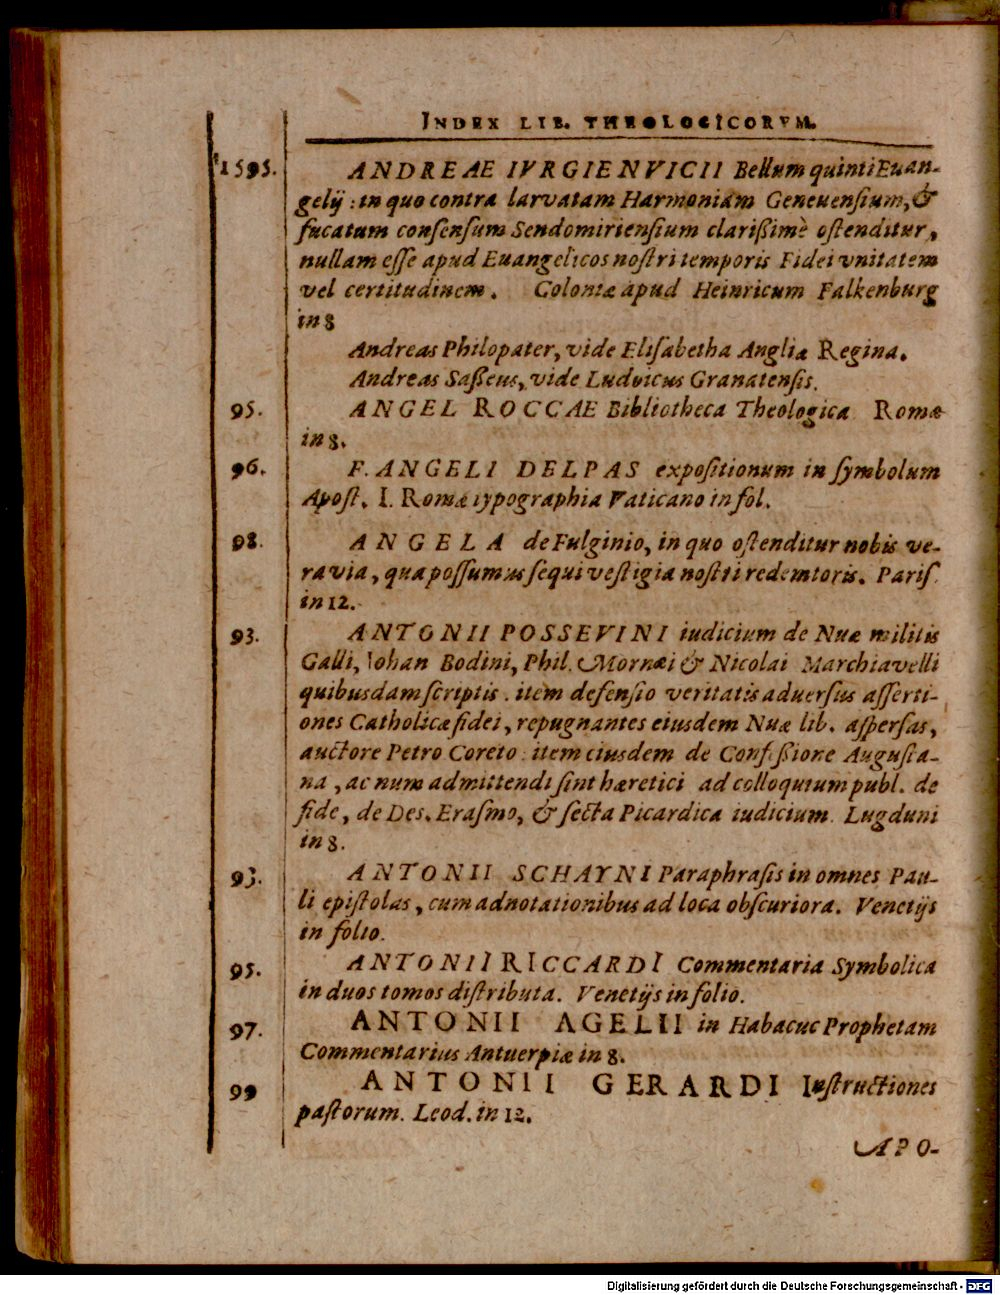 INDEX LIB. THEOLOGICORVM.
1595. ANDREAE IVRGIENVICII Bellum quinti Euan-
gelij : in quo contra larvatam Harmoniam Geneuenſium, &
fucatum conſenſum Sendomirienſium clarißimè oſtenditur,
nullam eſſe apud Euangelicos noſtri temporis Fidei vnitatem
vel certitudinem. Coloniæ apud Heinricum Falkenburg
in 8
Andreas Philopater, vide Eliſabetha Angliæ Regina.
Andreas Saßeus, vide Ludvicus Granatenſis.
95. ANGEL ROCCAE Bibliotheca Theologica Romæ
in 8.
96. F. ANGELI DELPAS expoſitionum in ſymbolum
Apoſt. I. Romæ typographia Vaticano in fol.
98. ANGELA de Fulginio, in quo oſtenditur nobis ve-
ra via, qua poſſumus ſequi veſtigia noſtri redemtoris. Pariſ.
in 12.
93. ANTONII POSSEVINI iudicium de Nuæ militis
Galli, Iohan Bodini, Phil. Mornæi & Nicolai Marchiavelli
quibusdam ſcriptis. item defenſio veritatis aduerſus aſſerti-
ones Catholicæ fidei, repugnantes eiusdem Nuæ lib. aſperſas,
auctore Petro Coreto : item eiusdem de Confeßione Auguſta-
na, ac num admittendi ſint hæretici ad colloquium publ. de
fide, de Des. Eraſmo, & ſecta Picardica iudicium. Lugduni
in 8.
93. ANTONII SCHAYNI Paraphraſis in omnes Pau-
li epiſtolas, cum adnotationibus ad loca obſcuriora. Venetijs
in folio.
95. ANTONII RICCARDI Commentaria Symbolica
in duos tomos diſtributa. Venetijs in folio.
97. ANTONII AGELII in Habacuc Prophetam
Commentarius Antuerpiæ in 8.
99 ANTONII GERARDI Inſtructiones
paſtorum. Leod. in 12.
APO-
Digitalisierung gefördert durch die Deutsche Forschungsgemeinschaft - DFG